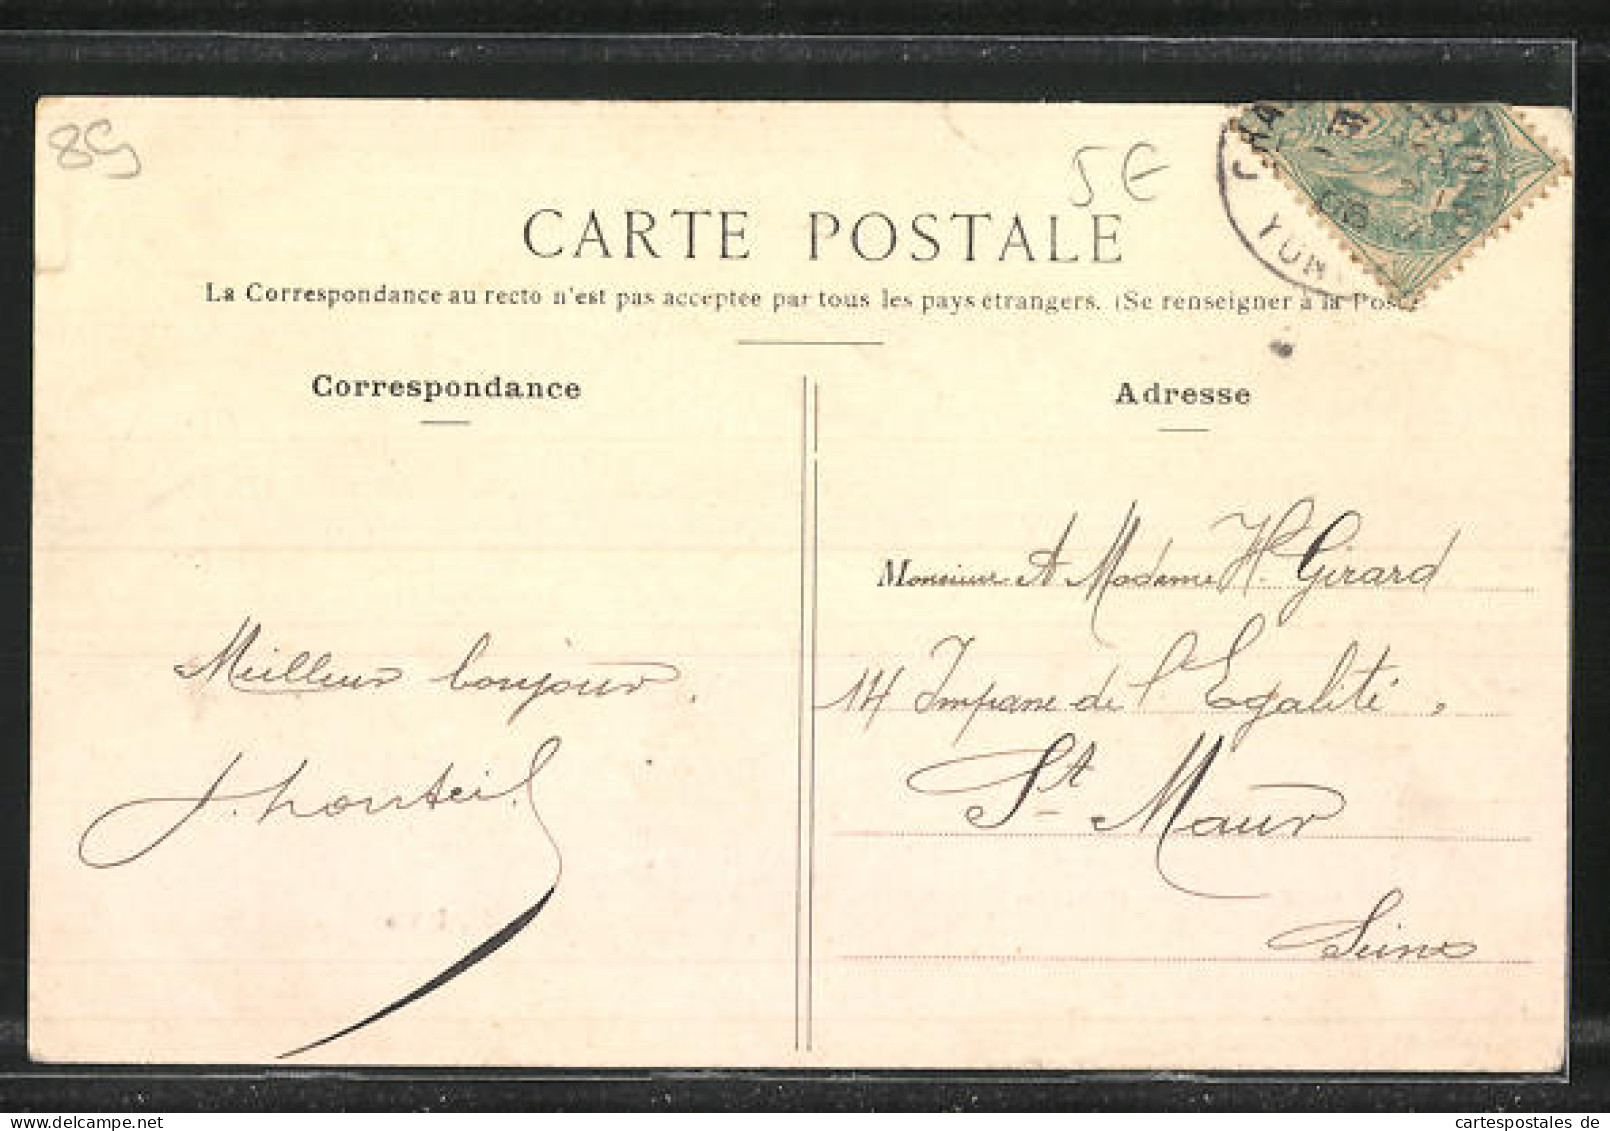 89
5E
CARTE POSTALE
La Correspondance au recto n'est pas acceptée par tous les pays étrangers. (Se renseigner à la Poste
Correspondance
Adresse
Meilleur bonjour.
J. Monteil
Monsieur et Madame H. Girard
14 Impasse de l'Egalité,
St Maur
Seine
CHA
YONN
cartespostales de